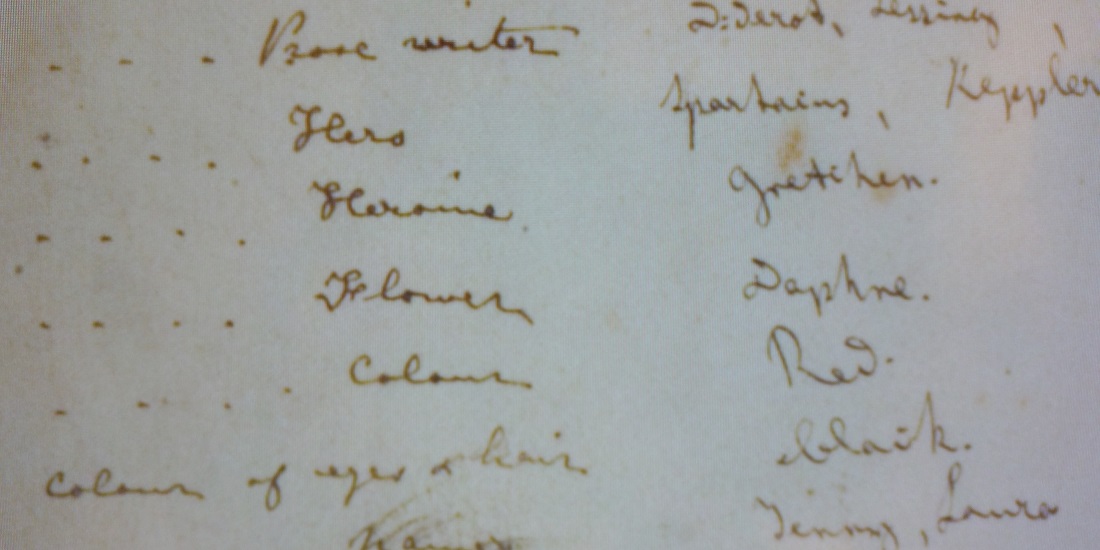 .... Prose writer Diderot, Lessing,
.... Hero Spartacus, Keppler
.... Heroine Gretchen.
.... Flower Daphne.
.... Colour Red.
Colour of eyes & hair black.
Names Jenny, Laura